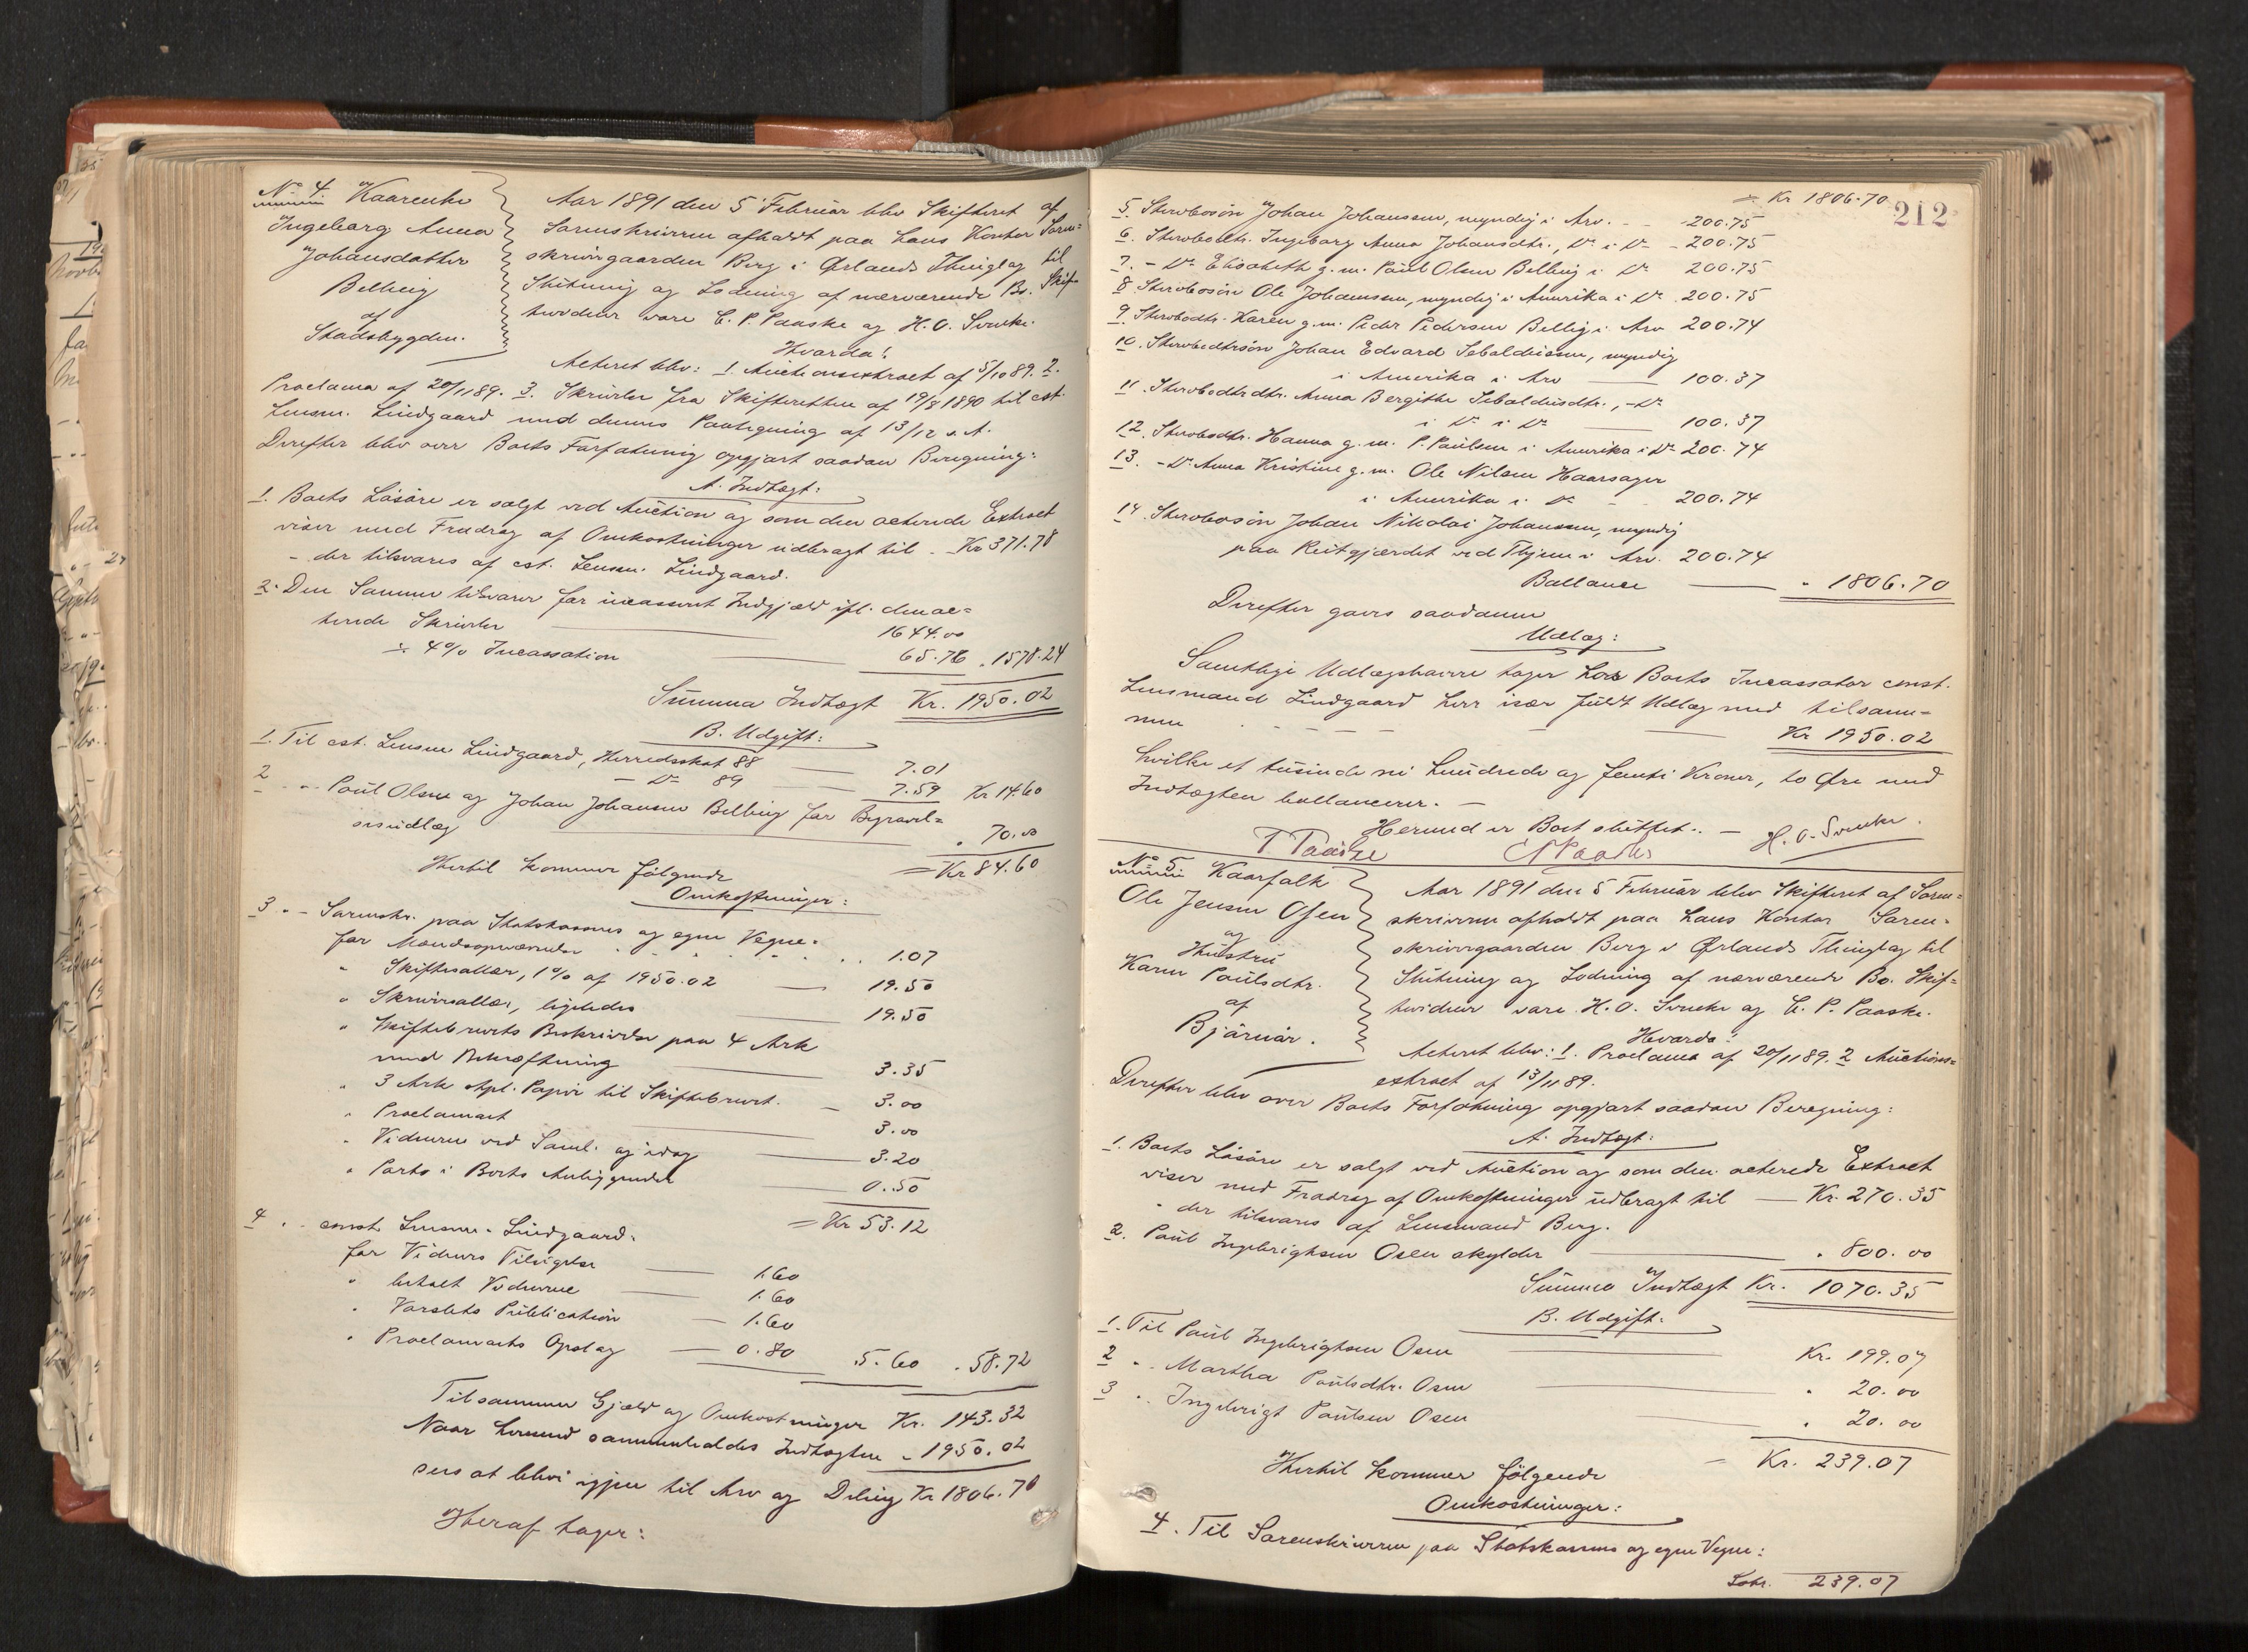 No 4. Kaarenke
Ingeborg Anna
Johansdatter
Belling
af
Stadsbygden.
Aar 1891 den 5 Februar blev Skifteret af
Sorenskriveren afholdt paa hans Kontor Soren=
skrivergaarden Berg i Ørlands Thinglag til
Slutning og Lodning af nærværende Bo. Skif=
tevidner vare C. P. Paaske og H. O. Svenke.
Hvorda!
Acteret blev: 1. Auctionsextract af 5/10 89. 2.
Proclama af 20/11 89. 3. Skrivelse fra Skifteretten af 19/8 1890 til cst.
Lensm. Lindgaard med dennes Paategning af 13/12 s. A.
Derefter blev over Boets Forfatning opgjort saadan Beregning:
A. Indtægt:
1. Boets Løsøre er solgt ved Auction og som den acterede Extract
viser med Fradrag af Omkostninger udbragt til - Kr 371.78
- der tilsvares af cst. Lensm. Lindgaard.
2. Den Samme tilsvarer for incasseret Indgjæld ifl. den ac=
terede Skrivelse 1644.00
÷ 4% Incassation 65.76 " 1578.24
Summa Indtægt Kr. 1950.02
B. Udgift:
1. Til cst. Lensm Lindgaard, Herredsskat 88 7.01
- Do 89 7.59 Kr 14.60
2 " - Paul Olsen og Johan Johansen Belling for Begravel=
sesudlæg " 70.00
= Kr 84.60
Hertil kommer følgende
Omkostninger:
3 " - Sorenskr. paa Statskassens og egne Vegne:
for Mandsopnævnelse 1.07
" Skiftesallær, 1% af 1950.02 19.50
" Skriversallær, ligeledes 19.50
" Skiftebrevets Beskrivelse paa 4 Ark
med Bekræftning 3.35
" 3 Ark stpl. Papir til Skiftebrevet. 3.00
" Proclamaet 3.00
" Vidnerne ved Saml. og idag 3.20
" Porto i Boets Anliggender 0.50
= Kr 53.12
4 " - const. Lensm. Lindgaard:
for Vidners Tilsigelse 1.60
" betalt Vidnerne 1.60
" Varslets Publication 1.60
" Proclamaets Opslag 0.80 5.60 " 58.72
Tilsammen Gjæld og Omkostninger Kr. 143.32
Naar hermed sammenholdes Indtægten " 1950.02
sees at blive igjen til Arv og Deling Kr 1806.70
Heraf tager:
212
= Kr 1806.70
5. Stervbosøn Johan Johansen, myndig i Arv. - 200.75
6. Stervbodtr. Ingeborg Anna Johansdtr., Do i Do - 200.75
7. - Do Elisabeth g. m. Paul Olsen Belling i Do 200.75
8. Stervbosøn Ole Johansen, myndig i Amerika i Do 200.75
9. Stervbodtr. Karen g.m. Peder Pedersen Belling i Arv 200.74
10. Stervbodtrsøn Johan Edvard Sebaldussen, myndig
i Amerika i Arv 100.37
11. Stervbodtrdtr. Anna Bergithe Sebaldusdtr., - Do
i Do i Do 100.37
12. Stervbodtr. Hanna g. m. P. Paulsen i Amerika i Do 200.74
13. - Do Anna Kristine g. m. Ole Nilsen Haarsager
i Amerika i Do 200.74
14. Stervbosøn Johan Nikolai Johansen, myndig
paa Reitgjærdet ved Thjem i Arv. 200.74
Ballance " 1806.70
Derefter gaves saadanne
Udlæg:
Samtlige Udlægshavere tager hos Boets Incassator const.
Lensmand Lindgaard hver især fuldt Udlæg med tilsam=
men Kr 1950.02
hvilke et tusinde ni hundrede og femti Kroner, to Øre med
Indtægten ballancerer. -
Hermed er Boet sluttet. -
H. O. Svenke.
No 5. Kaarfolk
Ole Jensen Osen
og
Hustru
Karen Paulsdtr.
af
Bjørnør.
Aar 1891 den 5 Februar blev Skifteret af Soren=
skriveren afholdt paa hans Kontor Soren=
skrivergaarden Berg i Ørlands Thinglag til
Slutning og Lodning af nærværende Bo. Skif=
tevidner vare H. O. Svenke og C. P. Paaske.
Hvorda!
Acteret blev: 1. Proclama af 20/11 89. 2 Auctions=
extract af 13/11 89.
Derefter blev over Boets Forfatning opgjort saadan Beregning:
A. Indtægt:
1. Boets Løsøre er solgt ved Auction og som den acterede Extract
viser med Fradrag af Omkostninger udbragt til - Kr. 270.35
- der tilsvares af Lensmand Berg.
2. Paul Ingebrigtsen Osen skylder " 800.00
Summa Indtægt Kr. 1070.35
B. Udgift:
1. Til Paul Ingebrigtsen Osen Kr. 199.07
2 " - Martha Paulsdtr. Osen " 20.00
3 " - Ingebrigt Paulsen Osen " 20.00
- Kr. 239.07
Hertil kommer følgende
Omkostninger:
4. Til Sorenskriveren paa Statskassens og egne Vegne:
Latr. 239.07